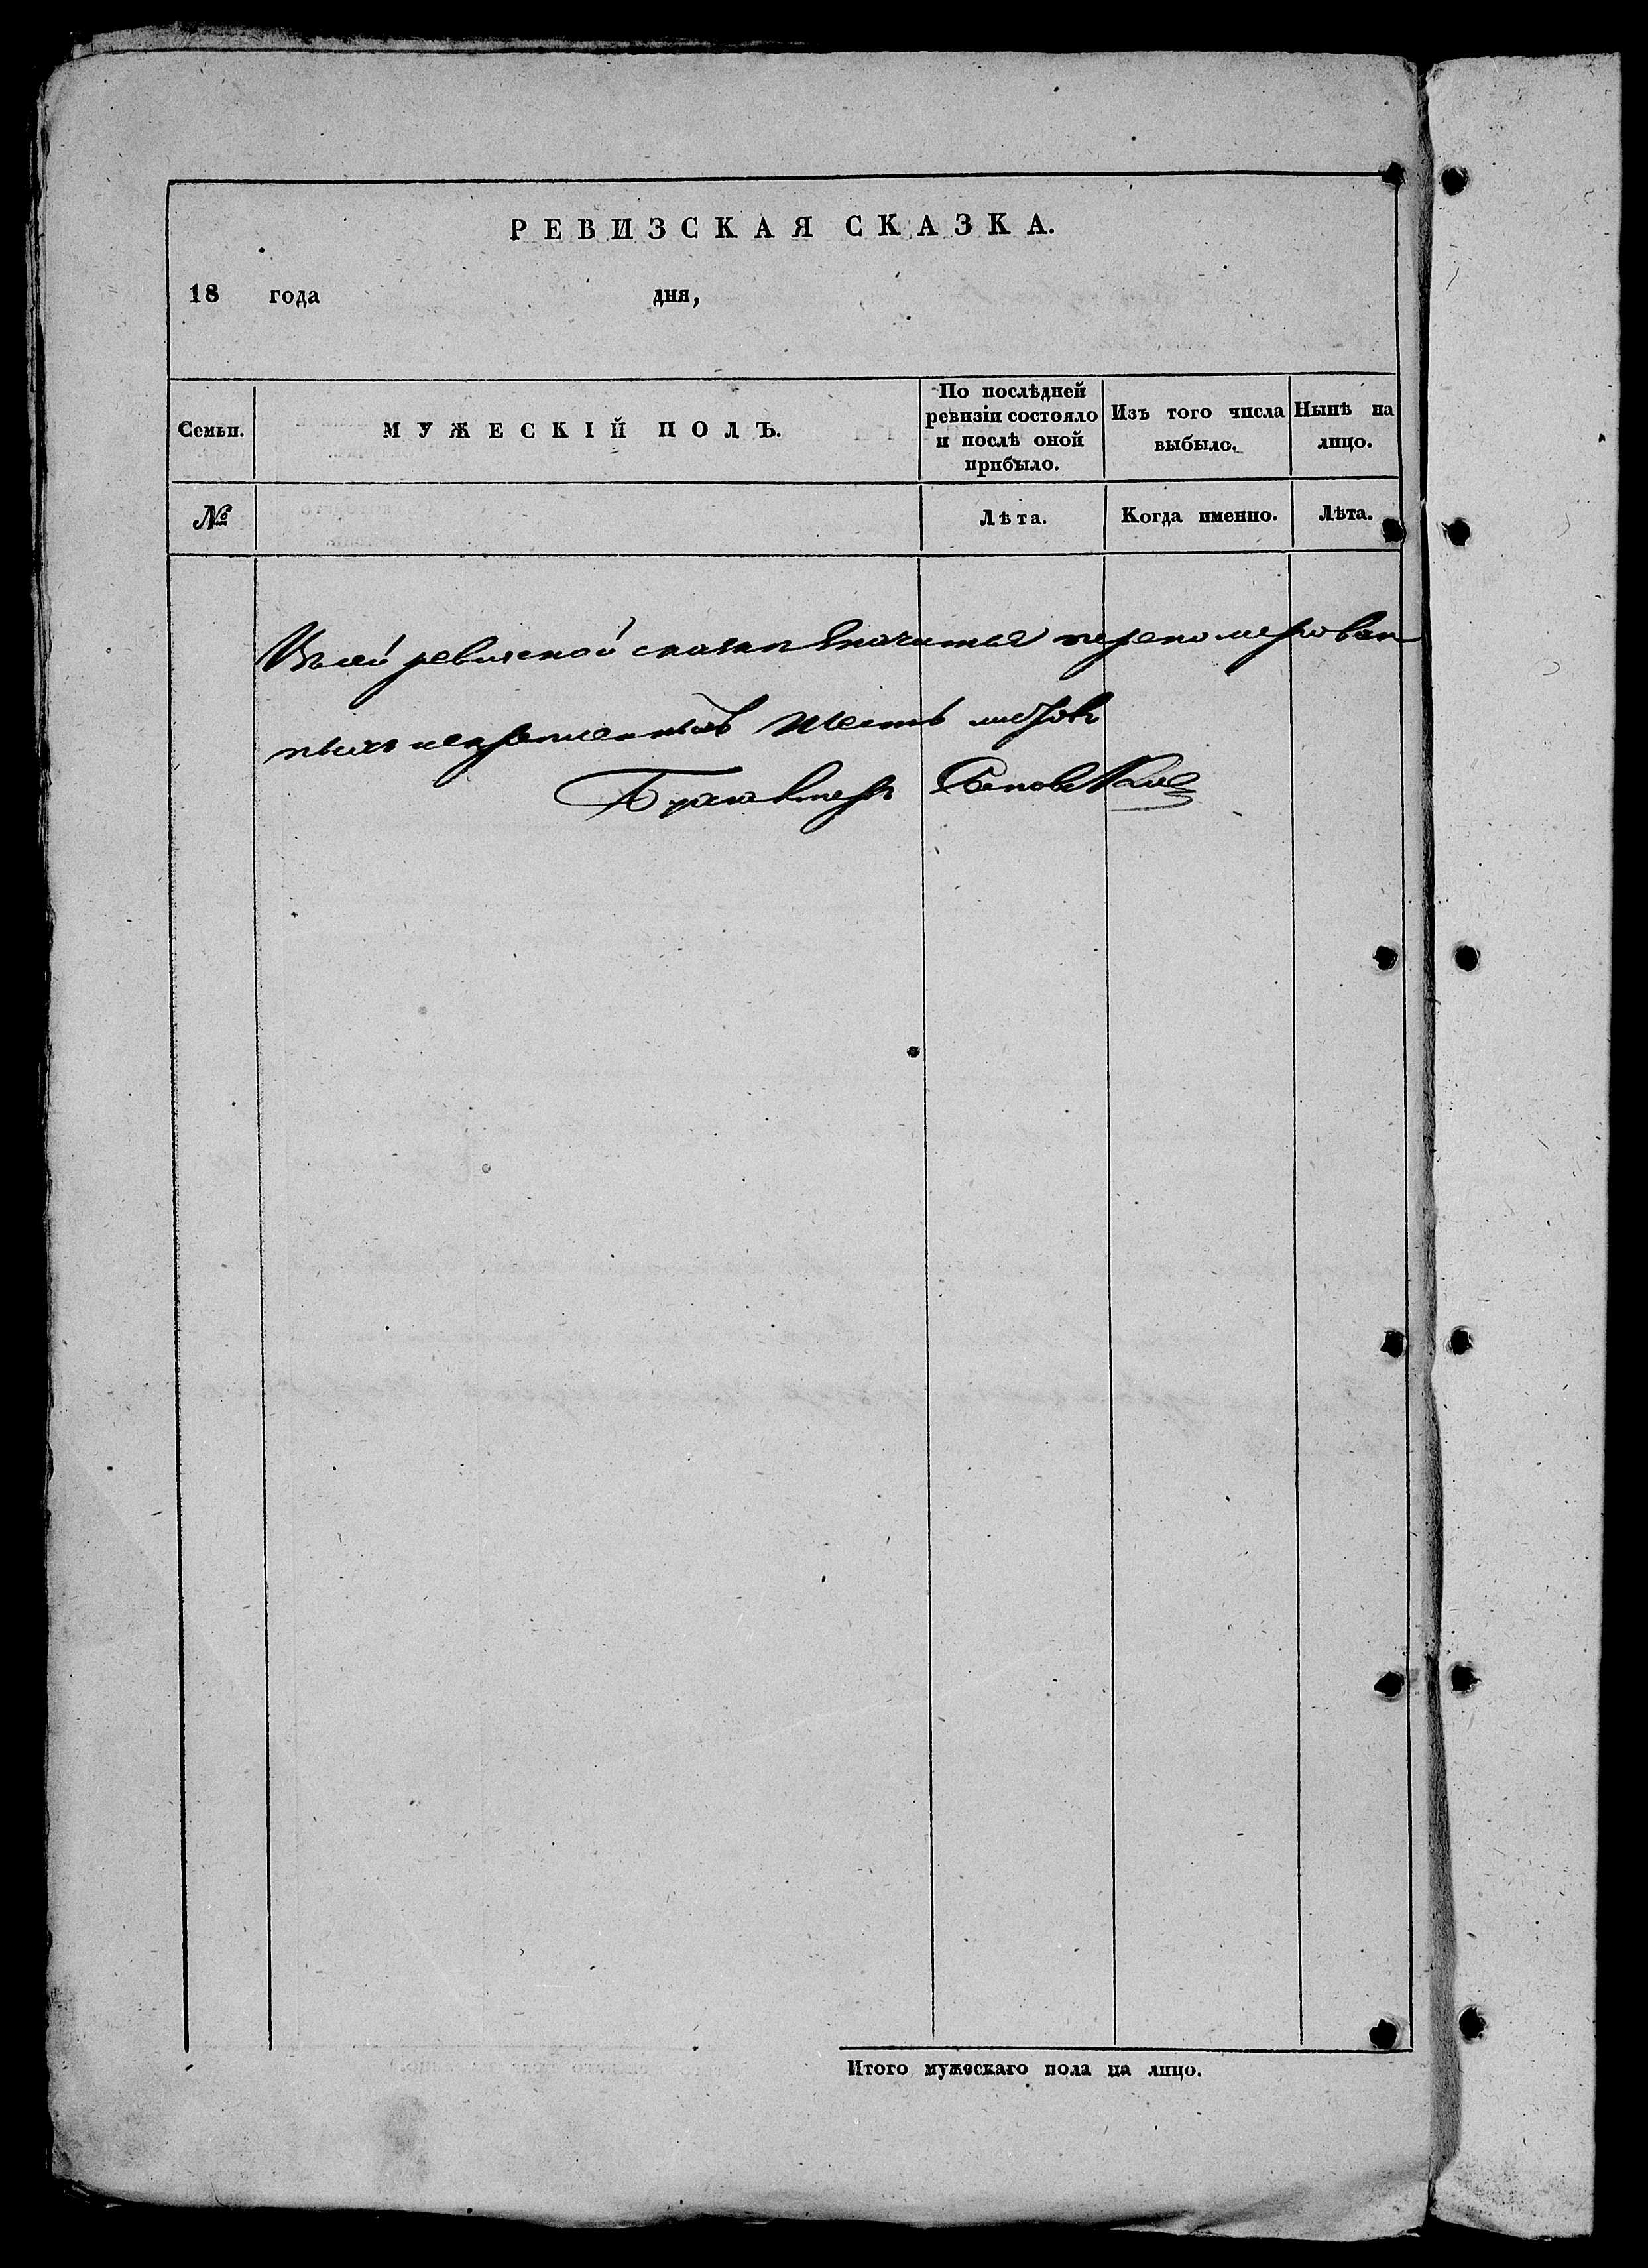 РЕВИЗСКАЯ СКАЗКА.
18 года дня,
Семьи.
МУЖЕСКІЙ ПОЛЪ.
По послѣдней
ревизіи состояло
и послѣ оной
прибыло.
Изъ того числа
выбыло.
Нынѣ на
лицо.
№
Лѣта.
Когда именно.
Лѣта.
Въ сей ревизской сказки значитьсе перенумерован
ныхъ искрепленныхъ шесть листовъ
Бухгалтеръ
Итого мужескаго пола на лицо.